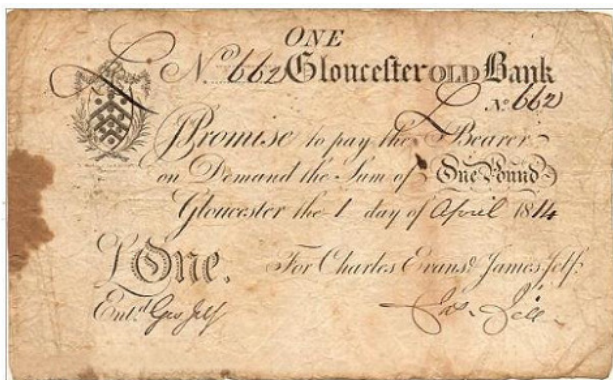 ONE
No. 662 Gloucester OLD Bank
No. 662
I Promise to pay the Bearer
on Demand the Sum of One Pound
Gloucester the 1 day of April 1814
£ One.
For Charles Evans & James Jelf
Entd. Geo Jelf
Jas. Jelf